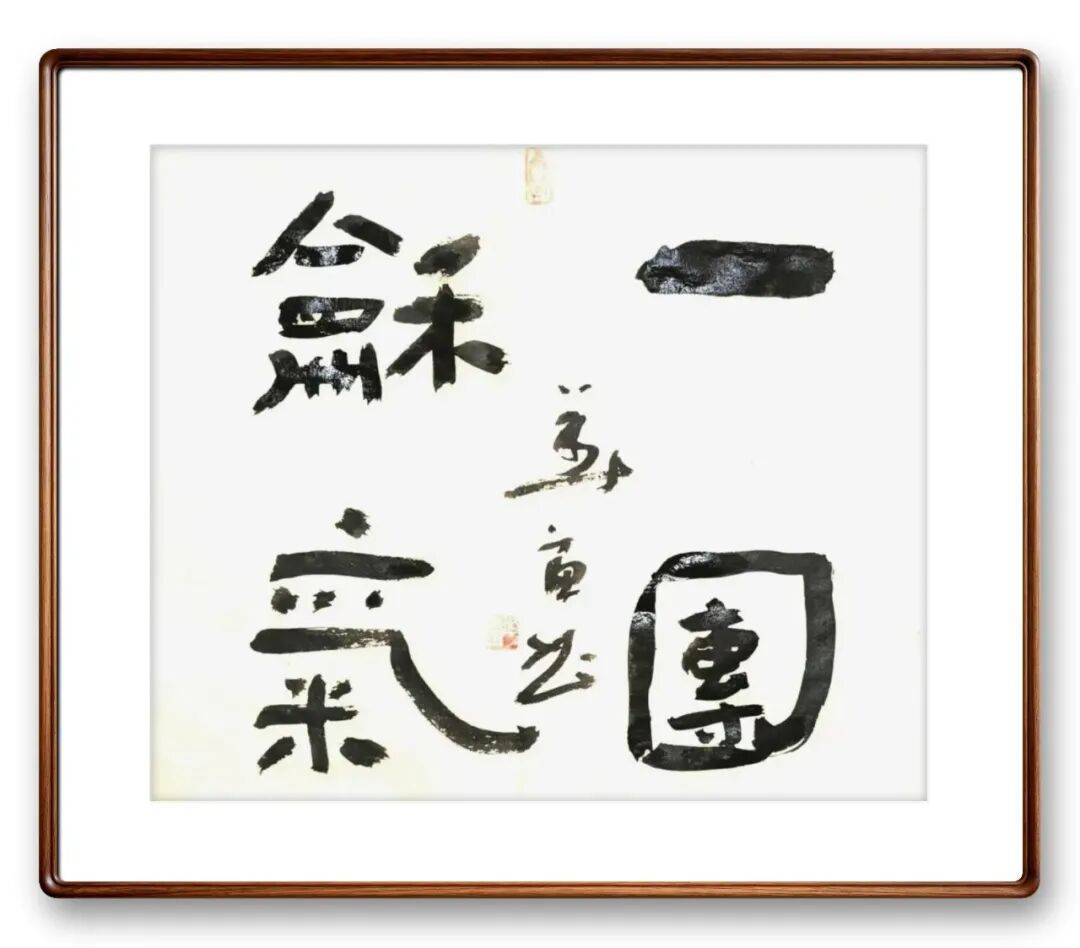 一團
龢氣